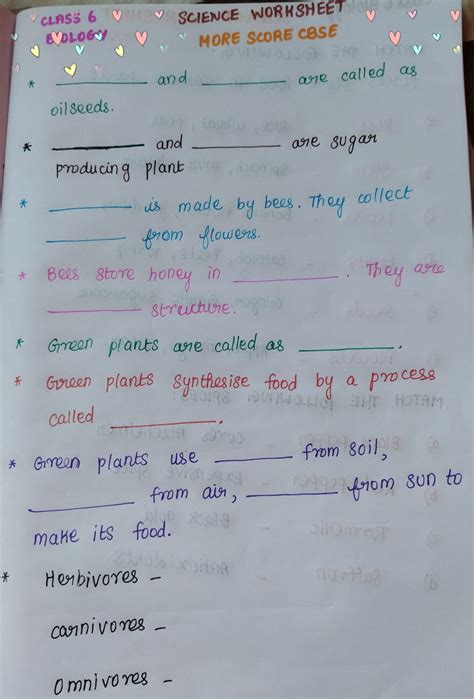 CLASS 6 SCIENCE WORKSHEET
BIOLOGY MORE SCORE CBSE
* ________ and ________ are called as
oilseeds.
* ________ and ________ are sugar
producing plant
* ________ is made by bees. They collect
________ from flowers.
* Bees store honey in ________. They are
________ structure.
* Green plants are called as ________.
* Green plants synthesise food by a process
called ________.
* Green plants use ________ from soil,
________ from air, ________ from sun to
make its food.
* Herbivores -
carnivores -
Omnivores -